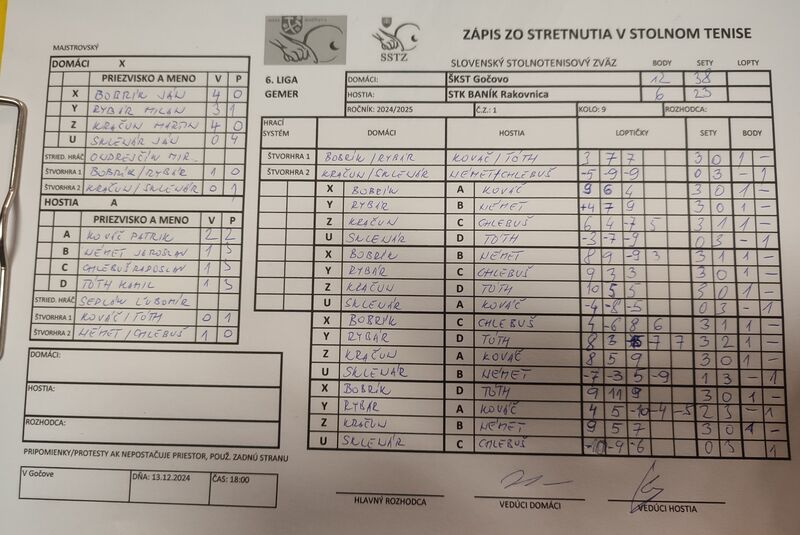 SSTZ
ZÁPIS ZO STRETNUTIA V STOLNOM TENISE
SLOVENSKÝ STOLNOTENISOVÝ ZVÄZ
BODY SETY LOPTY
6. LIGA
GEMER
DOMÁCI: ŠKST Gočovo 12 38
HOSTIA: STK BANÍK Rakovnica 6 23
ROČNÍK: 2024/2025 Č.Z.: 1 KOLO: 9 ROZHODCA:
MAJSTROVSKÝ
DOMÁCI X
PRIEZVISKO A MENO V P
X BOBRÍK JÁN 4 0
Y RYBÁR MILAN 3 1
Z KRAČUN MARTIN 4 0
U SKLENÁR JÁN 0 4
STRIED. HRÁČ ONDREJČÍN MIR.
ŠTVORHRA 1 BOBRÍK/RYBÁR 1 0
ŠTVORHRA 2 KRAČUN/SKLENÁR 0 1
HOSTIA A
PRIEZVISKO A MENO V P
A KOVÁČ PATRIK 2 2
B NÉMET JAROSLAV 1 3
C CHLEBUŠ RADOSLAV 1 3
D TÓTH KAMIL 1 3
STRIED. HRÁČ SEDLÁK ĽUBOMÍR
ŠTVORHRA 1 KOVÁČ/TÓTH 0 1
ŠTVORHRA 2 NÉMET/CHLEBUŠ 1 0
DOMÁCI:
HOSTIA:
ROZHODCA:
PRIPOMIENKY/PROTESTY AK NEPOSTAČUJE PRIESTOR, POUŽ. ZADNÚ STRANU
V Gočove DŇA: 13.12.2024 ČAS: 18:00
HRACÍ SYSTÉM DOMÁCI HOSTIA LOPTIČKY SETY BODY
ŠTVORHRA 1 BOBRÍK/RYBÁR KOVÁČ/TÓTH 3 7 7 3 0 1 -
ŠTVORHRA 2 KRAČUN/SKLENÁR NÉMET/CHLEBUŠ -5 -9 -9 0 3 - 1
X BOBRÍK A KOVÁČ 9 6 4 3 0 1 -
Y RYBÁR B NÉMET 7 9 3 0 1 -
Z KRAČUN C CHLEBUŠ 6 4 -7 5 3 1 1 -
U SKLENÁR D TÓTH -3 -7 -9 0 3 - 1
X BOBRÍK B NÉMET 8 9 -9 3 3 1 1 -
Y RYBÁR C CHLEBUŠ 9 3 3 3 0 1 -
Z KRAČUN D TÓTH 10 5 5 3 0 1 -
U SKLENÁR A KOVÁČ -4 -8 -5 0 3 - 1
X BOBRÍK C CHLEBUŠ 4 -6 8 6 3 1 1 -
Y RYBÁR D TÓTH 8 3 7 7 3 2 1 -
Z KRAČUN A KOVÁČ 8 5 9 3 0 1 -
U SKLENÁR B NÉMET -7 -3 5 -9 1 3 - 1
X BOBRÍK D TÓTH 9 11 9 3 0 1 -
Y RYBÁR A KOVÁČ 4 5 -10 -4 -5 2 3 - 1
Z KRAČUN B NÉMET 9 5 7 3 0 1 -
U SKLENÁR C CHLEBUŠ -10 -9 -6 0 3 1
HLAVNÝ ROZHODCA VEDÚCI DOMÁCI VEDÚCI HOSTIA